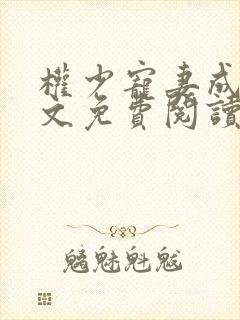 權少寵妻成
文免費閱讀
魑魅魁魃